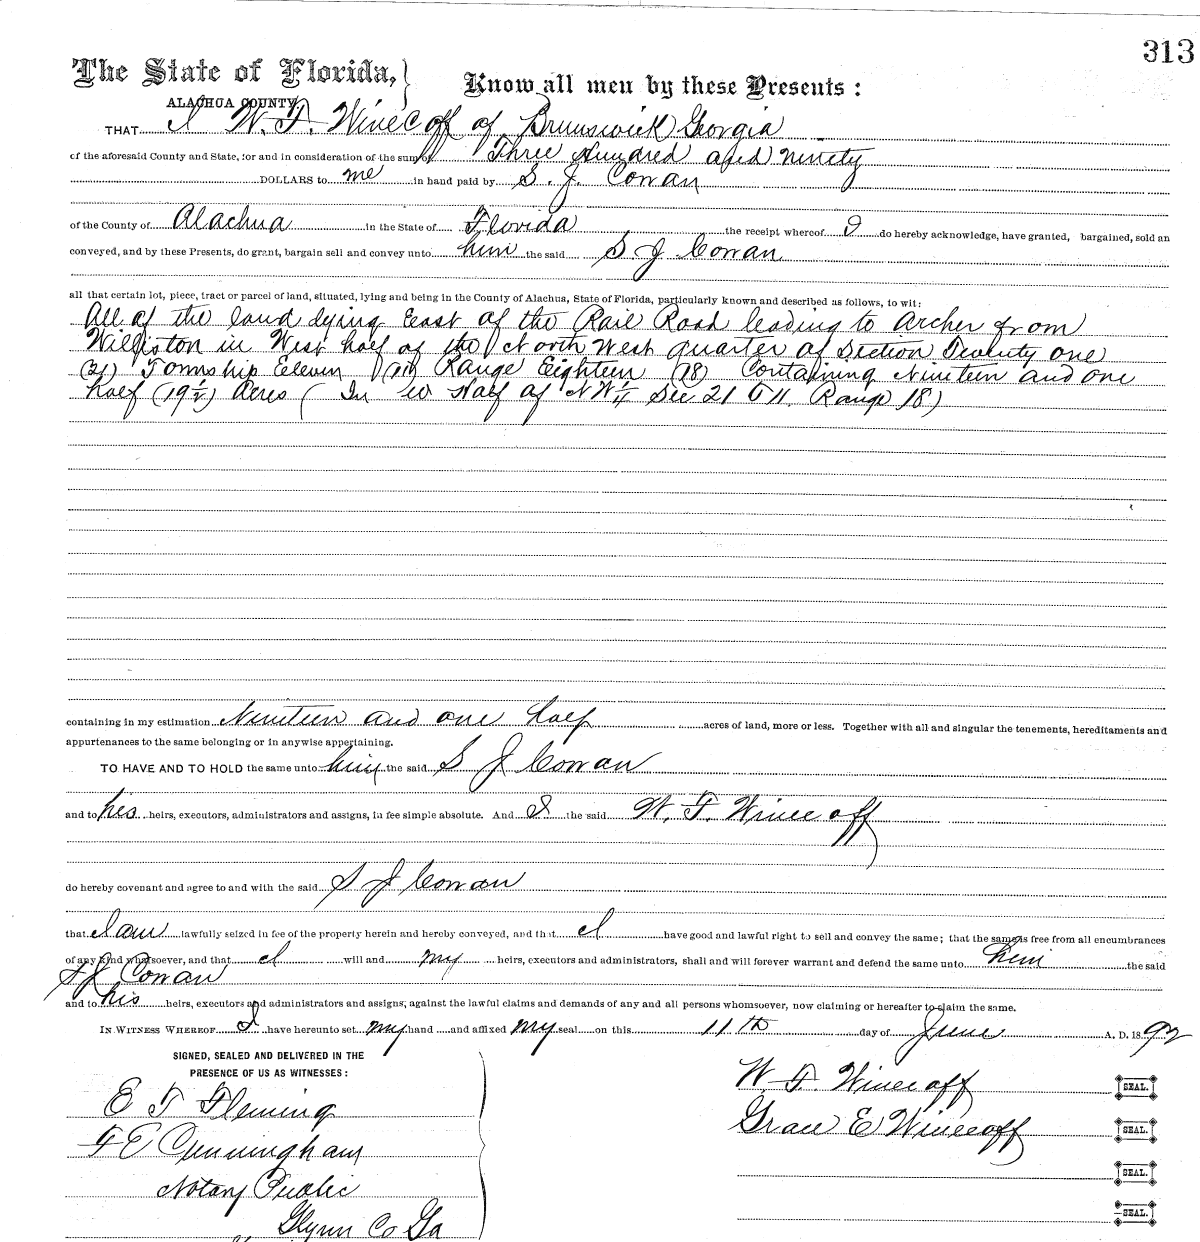 313
The State of Florida, } Know all men by these Presents :
ALACHUA COUNTY.
THAT I W. F. Winecoff of Brunswick Georgia
of the aforesaid County and State, for and in consideration of the sum of Three Hundred and ninety
DOLLARS to me in hand paid by S. J. Cowan
of the County of Alachua in the State of Florida the receipt whereof I do hereby acknowledge, have granted, bargained, sold an
conveyed, and by these Presents, do grant, bargain sell and convey unto him the said S J Cowan
all that certain lot, piece, tract or parcel of land, situated, lying and being in the County of Alachua, State of Florida, particularly known and described as follows, to wit:
All of the land lying East of the Rail Road leading to Archer from
Williston in West half of the North West quarter of Section Twenty one
(21) Township Eleven (11) Range Eighteen (18) Containing Nineteen and one
half (19½) Acres ( In W Half of NW¼ Sec 21 T 11. Range 18)
containing in my estimation Nineteen and one half acres of land, more or less. Together with all and singular the tenements, hereditaments and
appurtenances to the same belonging or in anywise appertaining.
TO HAVE AND TO HOLD the same unto him the said S J Cowan
and to his heirs, executors, administrators and assigns, in fee simple absolute. And I the said W. F. Winecoff
do hereby covenant and agree to and with the said S J Cowan
that I am lawfully seized in fee of the property herein and hereby conveyed, and that I have good and lawful right to sell and convey the same; that the same is free from all encumbrances
of any kind whatsoever, and that I will and my heirs, executors and administrators, shall and will forever warrant and defend the same unto him the said
S J Cowan
and to his heirs, executors and administrators and assigns, against the lawful claims and demands of any and all persons whomsoever, now claiming or hereafter to claim the same.
IN WITNESS WHEREOF I have hereunto set my hand and affixed my seal on this 11th day of June A. D. 1892
SIGNED, SEALED AND DELIVERED IN THE
PRESENCE OF US AS WITNESSES :
W. F. Winecoff SEAL.
E T Fleming
Grace E Winecoff SEAL.
F E Cunningham
SEAL.
Notary Public
SEAL.
Glynn Co Ga